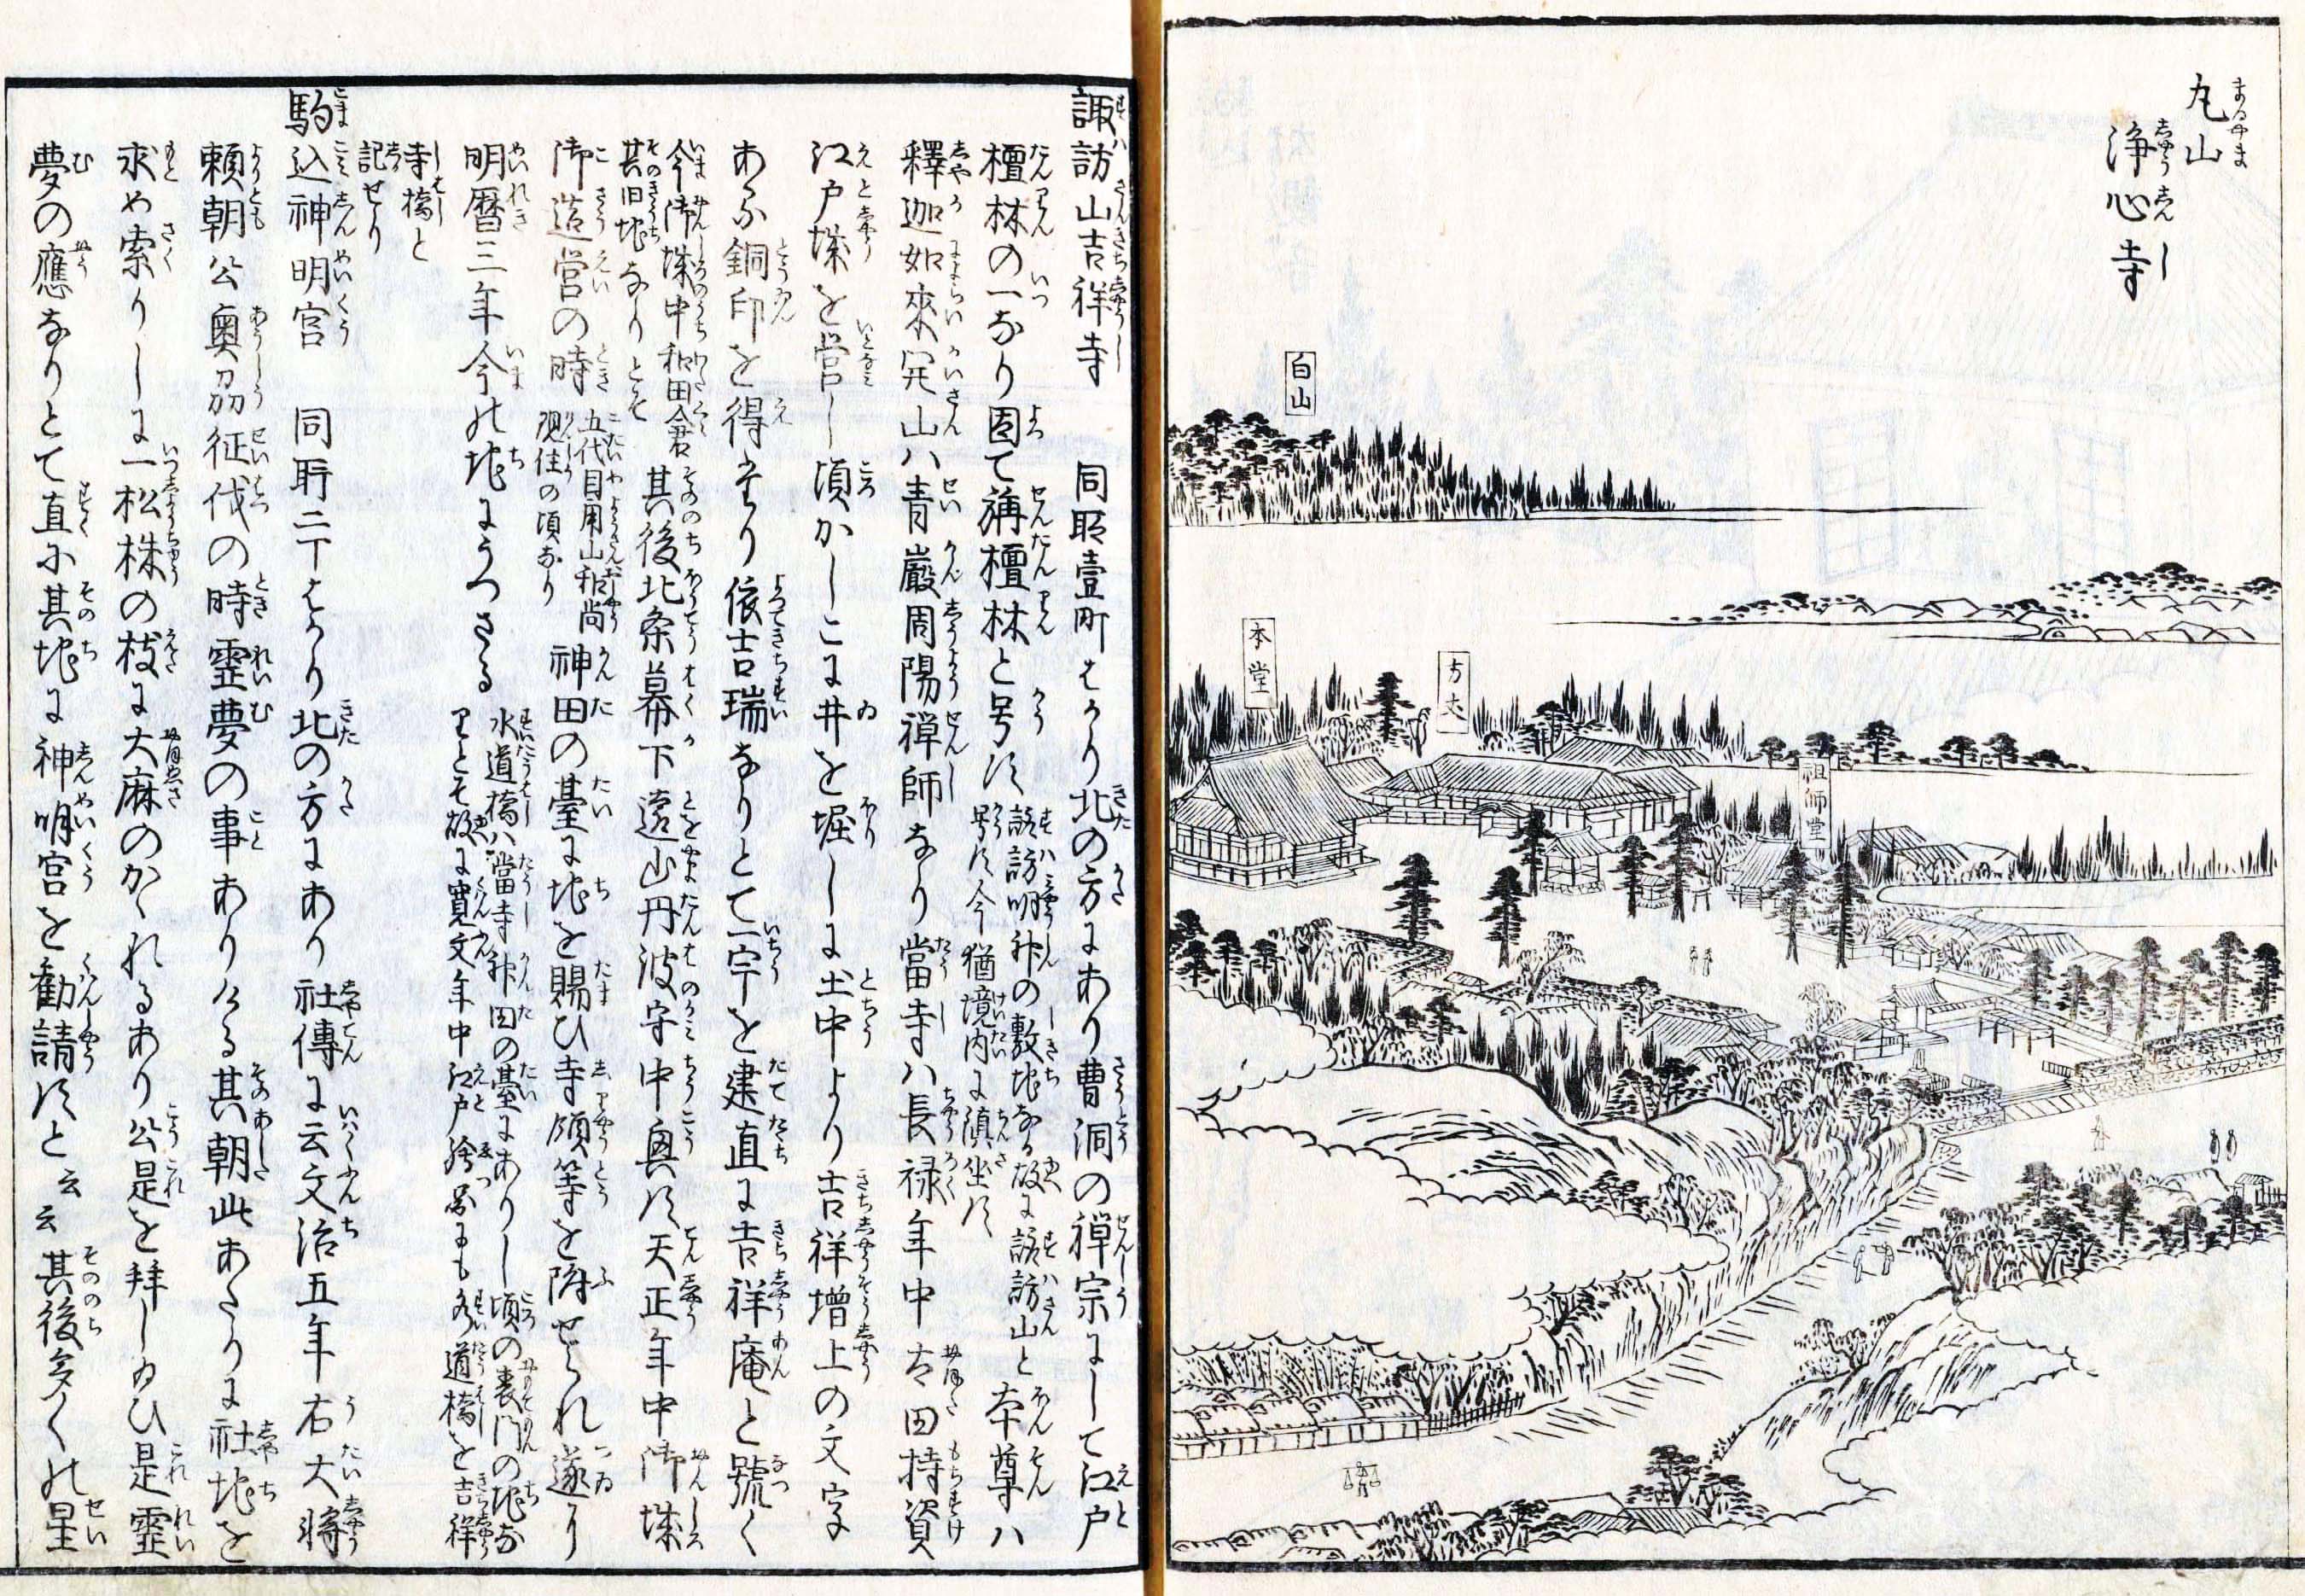 丸山
浄心寺
白山
本堂
方丈
祖師堂
諏訪山吉祥寺 同所壹町はかり北の方にあり曹洞の禅宗にして江戸
檀林の一なり因て旃檀林と号す
諏訪明神の敷地なる故に諏訪山と
号す今猶境内に鎮坐す
本尊ハ
釋迦如來開山ハ青巖周陽禅師なり當寺ハ長禄年中太田持資
江戸城を営し頃かしこに井を堀しに土中より吉祥増上の文字
ある銅印を得たり依吉瑞なりとて一宇を建直に吉祥庵と號く
今御城中和田倉
其旧地なりとそ
其後北条幕下遠山丹波守中興す天正年中御城
御造営の時
五代目用山和尚
現住の頃なり
神田の臺に地を賜ひ寺領等を附せられ遂に
明暦三年今の地にうつさる
水道橋ハ當寺神田の臺にありし頃の表門の地な
りとそ故に寛文年中江戸絵図にも水道橋を吉祥
寺橋と
記せり
駒込神明宮 同所二丁はかり北の方にあり社傳に云文治五年右大将
頼朝公奥州征伐の時霊夢の事ありける其朝此あたりに社地を
求め索りしに一松株の枝に大麻のかゝれるあり公是を拜し給ひ是霊
夢の應なりとて直に其地に神明宮を勧請すと云云其後多くの星